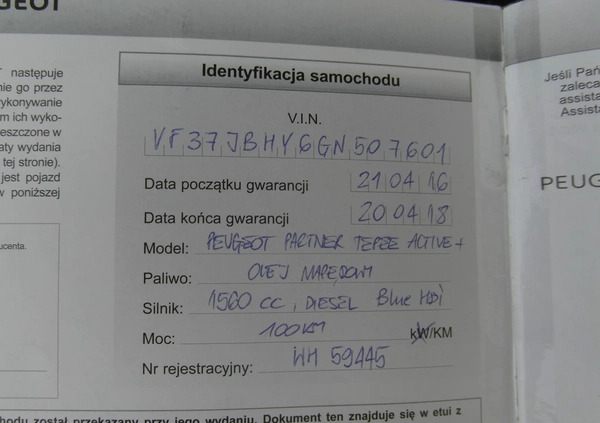 GEOT
następuje
nie go przez
ykonywanie
m ich wyko-
eszczone w
aty wydania
tej stronie).
jest pojazd
w poniższej
ucenta.
Identyfikacja samochodu
V.I.N.
VF37JBHY6GN507601
Data początku gwarancji 210416
Data końca gwarancji 200418
Model: PEUGEOT PARTNER TEPEE ACTIVE+
Paliwo: OLEJ NAPĘDOWY
Silnik: 1560 CC, DIESEL Blue HDi
Moc: 100KM kW/KM
Nr rejestracyjny: WH 59445
hodu został przekazany przy jego wydaniu. Dokument ten znajduje się w etui z
Jeśli Pań
zaleca
assista
Assista
PEUG